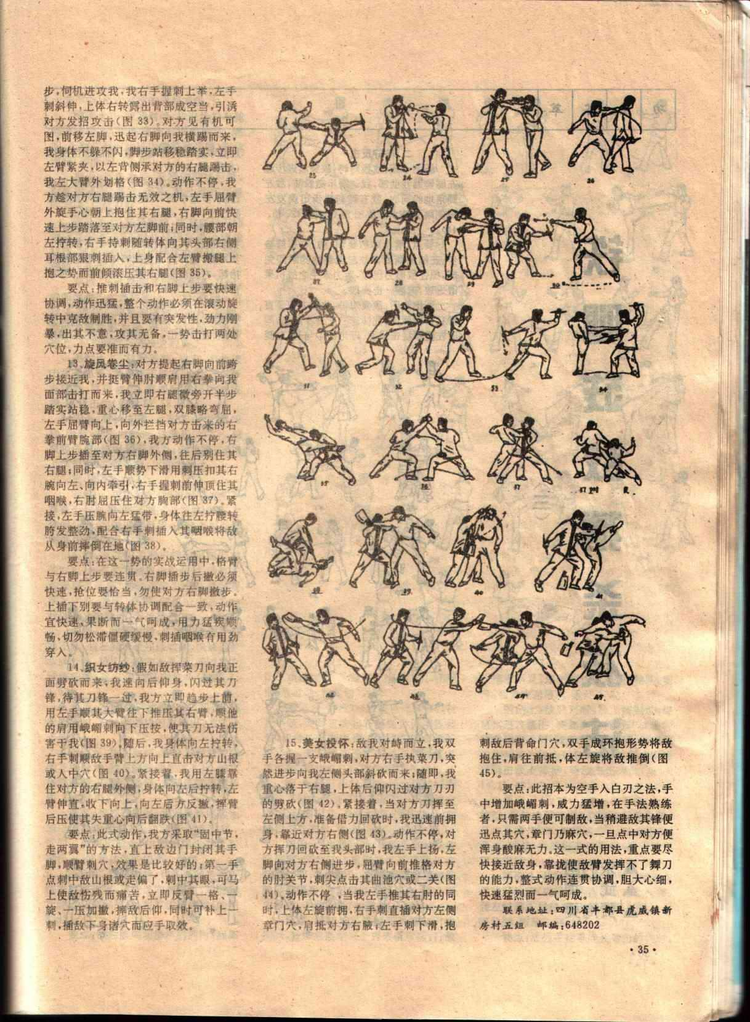 步,伺机进攻我,我右手握刺上举,左手
刺斜伸,上体右转露出背部成空当,引诱
对方发招攻击(图33)。对方见有机可
图,前移左脚,迅起右脚向我横踢而来,
我身体不躲不闪,脚步站移稳踏实,立即
左臂紧夹,以左背侧承对方的右腿踢击,
我左大臂外划格(图34)。动作不停,我
方趁对方右腿踢击无效之机,左手屈臂
外旋手心朝上抱住其右腿,右脚向前快
速上步踏落至对方左脚前;同时,腰部朝
左拧转,右手持刺随转体向其头部右侧
耳根部狠刺插入,上身配合左臂缠腿上
抱之势而前倾滚压其右腿(图35)。
要点:推刺插击和右脚上步要快速
协调,动作迅猛,整个动作必须在滚动旋
转中克敌制胜,并且要有突发性,劲力刚
暴,出其不意,攻其无备,一势击打两处
穴位,力点要准而有力。
13.旋风卷尘:对方提起右脚向前跨
步接近我,并挺臂伸肘顺肩用右拳向我
面部击打而来,我立即右腿微旁开半步
踏实站稳,重心移至左腿,双膝略弯屈,
左手屈臂向上,向外拦挡对方击来的右
拳前臂腕部(图36)。我方动作不停,右
脚上步插至对方右脚外侧,往后别住其
右腿;同时,左手顺势下滑用刺压扣其右
腕向左、向内牵引,右手握刺前伸顶住其
咽喉,右肘屈压住对方胸部(图37)。紧
接,左手压腕向左猛带,身体往左拧腰转
胯发整劲,配合右手刺插入其咽喉将敌
从身前摔倒在地(图38)。
要点:在这一势的实战运用中,格臂
与右脚上步要连贯,右脚插步后撤必须
快速,抢位要恰当,勿使对方右脚撤步。
上插下别要与转体协调配合一致,动作
宜快速,果断而一气呵成,用力猛疾顺
畅,切勿松滞僵硬缓慢,刺插咽喉有用劲
穿入。
14.织女纺纱:假如敌挥菜刀向我正
面劈砍而来,我速向后仰身,闪过其刀
锋,待其刀锋一过,我方立即趋步上前,
用左手顺其大臂往下推压其右臂,顺他
的肩用峨嵋刺向下压按,使其刀无法伤
害于我(图39)。随后,我身体向左拧转,
右手刺顺敌手臂上方向上直击对方山根
或人中穴(图40)。紧接着,我用左膝靠
住对方的右腿外侧,身体向左后拧转,左
臂伸直,收下向上,向左后方反撇,挥臂
后压使其失重心向后翻跌(图41)。
要点:此式动作,我方采取“固中节,
走两翼”的方法,直上敌边门封闭其手
脚,顺臂刺穴,效果是比较好的;第一手
点刺中敌山根或走偏了,刺中其眼,可马
上使敌伤残而痛苦,立即反臂一格、一
旋、一压加撇,摔敌后仰,同时可补上一
刺,插敌下身诸穴而应手取效。
33 34
35 36
15.美女投怀:敌我对峙而立,我双
手各握一支峨嵋刺,对方右手执菜刀,突
然进步向我左侧头部斜砍而来;随即,我
重心落于右腿,上体后仰闪过对方刀刃
的劈砍(图42)。紧接着,当对方刀挥至
左侧上方,准备借力回砍时,我迅速前拥
身,靠近对方右侧(图43)。动作不停,对
方挥刀回砍至我头部时,我左手上扬,左
脚向对方右侧进步,屈臂向前推格对方
的肘关节,刺尖点击其曲池穴或二关(图
44)。动作不停,当我左手推其右肘的同
时,上体左旋前拥,右手刺直插对方左侧
章门穴,肩抵对方右腋,左手刺下滑,抱
刺敌后背命门穴,双手成环抱形势将敌
抱住,肩往前抵,体左旋将敌推倒(图
45)。
要点:此招本为空手入白刃之法,手
中增加峨嵋刺,威力猛增,在手法熟练
者,只需两手便可制敌,当稍避敌其锋便
迅点其穴,章门乃麻穴,一旦点中对方便
浑身酸麻无力。这一式的用法,重点要尽
快接近敌身,靠拢使敌臂发挥不了舞刀
的能力,整式动作连贯协调,胆大心细,
快速猛烈而一气呵成。
联系地址:四川省丰都县虎威镇新
房村五组 邮编:648202
·35·